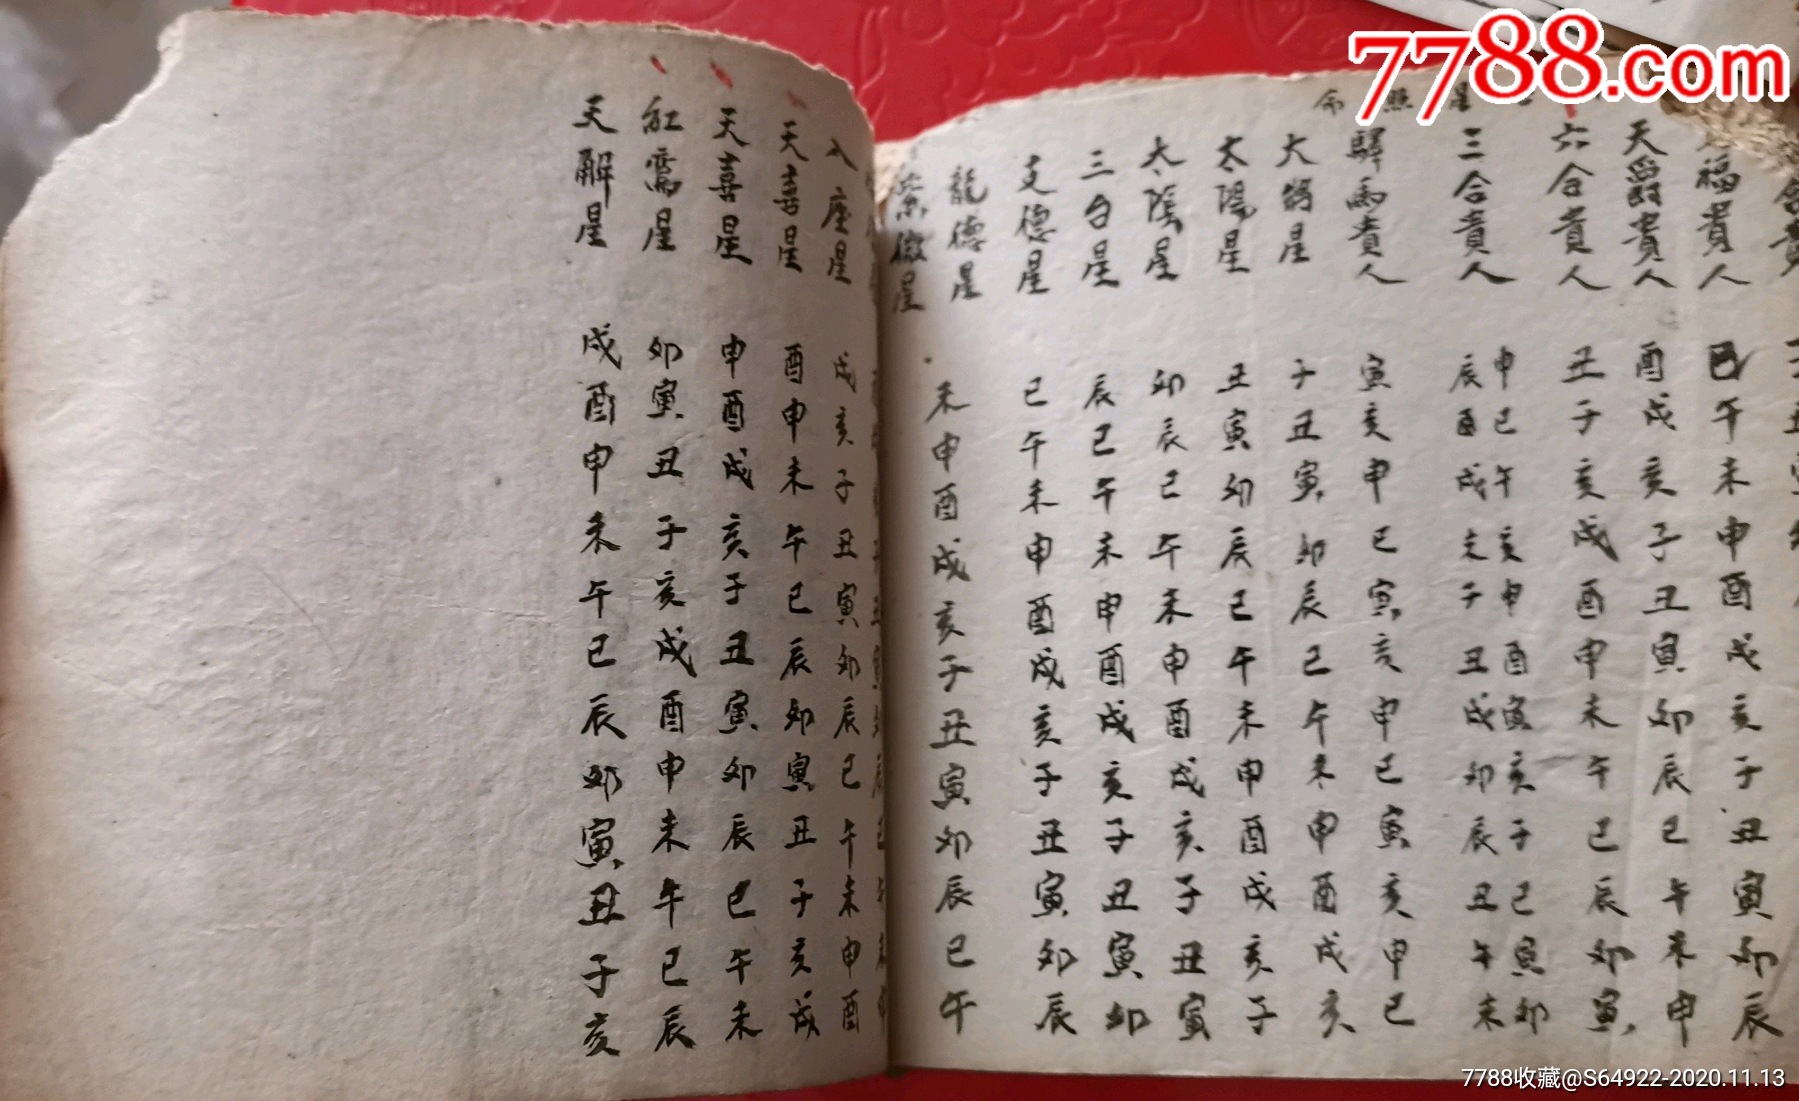 7788.com
星照命
福貴人 巳午未申酉戌亥子丑寅卯辰
天爵貴人 酉戌亥子丑寅卯辰巳午未申
六合貴人 丑子亥戌酉申未午巳辰卯寅
三合貴人 申巳午亥申酉寅亥子巳寅卯
辰酉戌未子丑戌卯辰丑午未
驛馬貴人 寅亥申巳寅亥申巳寅亥申巳
大將星 子丑寅卯辰巳午未申酉戌亥
太陽星 丑寅卯辰巳午未申酉戌亥子
太陰星 卯辰巳午未申酉戌亥子丑寅
三台星 辰巳午未申酉戌亥子丑寅卯
支德星 巳午未申酉戌亥子丑寅卯辰
龍德星 未申酉戌亥子丑寅卯辰巳午
紫微星
八座星 戌亥子丑寅卯辰巳午未申酉
天喜星 酉申未午巳辰卯寅丑子亥戌
天喜星 申酉戌亥子丑寅卯辰巳午未
紅鸞星 卯寅丑子亥戌酉申未午巳辰
天解星 戌酉申未午巳辰卯寅丑子亥
7788收藏@S64922-2020.11.13